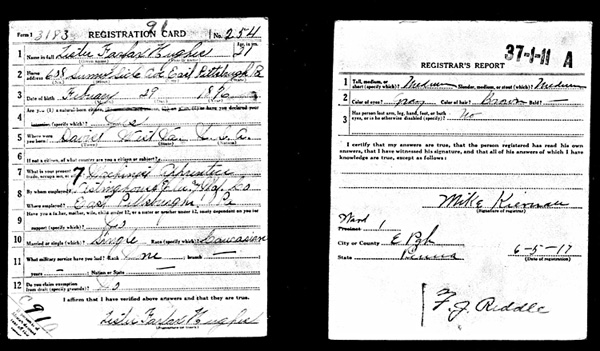 Form 1 3183 REGISTRATION CARD No. 254
1 Name in full Lester Farfax Hughes 21
2 Home address East Pittsburgh
3 Date of birth February 29
4 Are you (1) a natural-born (3) or have you declared your intention (specify which)? Yes
5 Where were you born? Davis West Van U.S.A.
6 If not a citizen, of what country are you a citizen or subject?
7 What is your present trade, occupation, or office? 7 Machinist Apprentice
8 By whom employed? Co
Where employed? East Pittsburgh Pa
9 Have you a father, mother, wife, child under 12, or a sister or brother under 12, solely dependent on you for support (specify which)?
10 Married or single (which)? Single Race (specify which)? Caucasian
11 What military service have you had? Rank branch
years Nation or State
12 Do you claim exemption from draft (specify grounds)?
I affirm that I have verified above answers and that they are true.
Lester Farfax Hughes
37-1-11 A
REGISTRAR'S REPORT
1 Tall, medium, or short (specify which)? Medium Slender, medium, or stout (which)? Medium
2 Color of eyes? gray Color of hair? Brown Bald? —
3 Has person lost arm, leg, hand, foot, or both eyes, or is he otherwise disabled (specify)? No
I certify that my answers are true, that the person registered has read his own
answers, that I have witnessed his signature, and that all of his answers of which I have
knowledge are true, except as follows:
Mike Kiernan
(Signature of registrar)
Ward 1
Precinct
City or County E Pgh
State Penna 6-5-17
(Date of registration)
F. J. Riddle